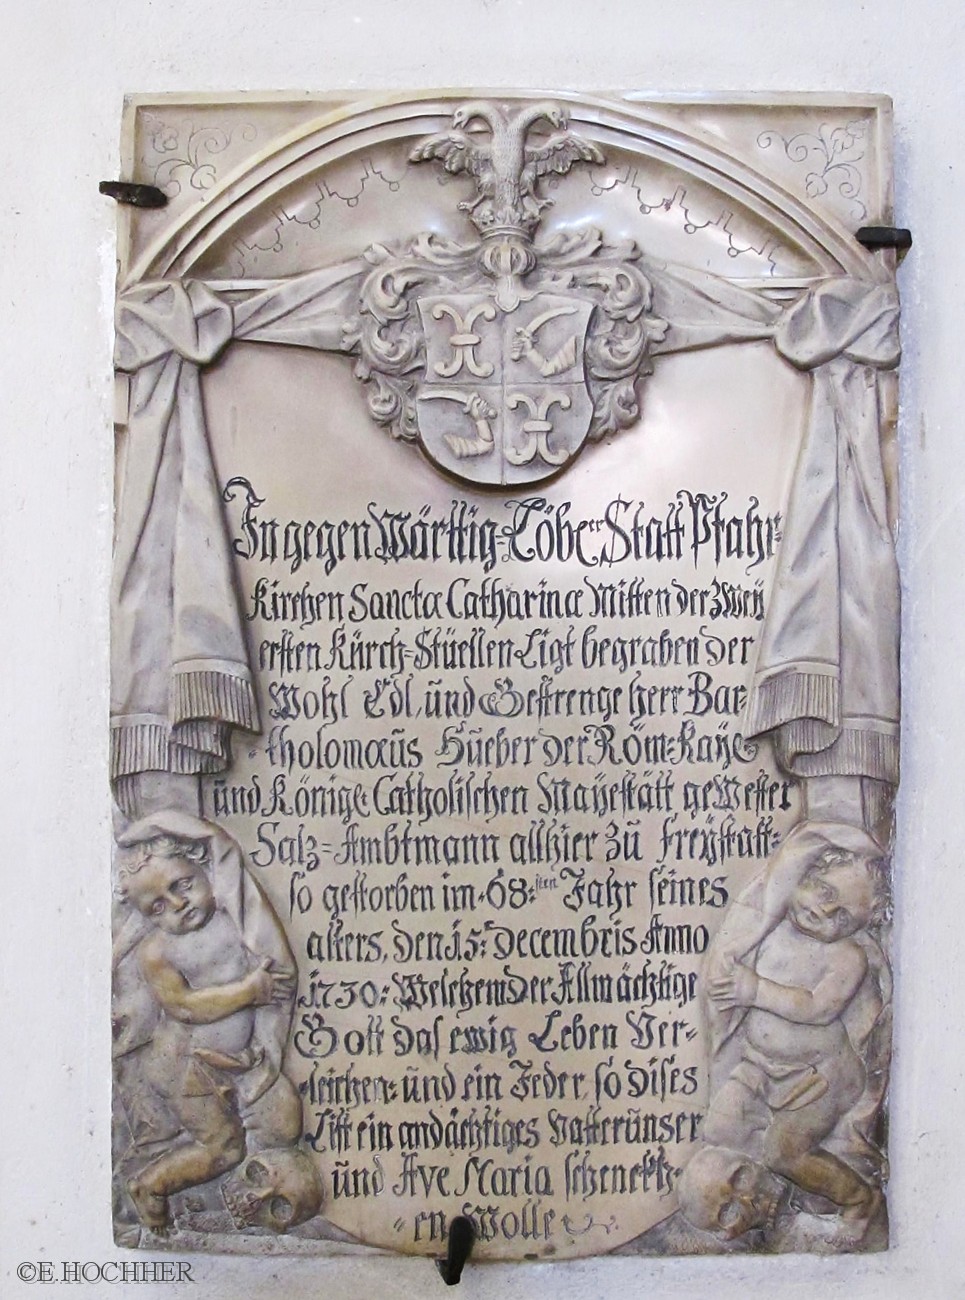 In gegen Wärttig=Löbe͏ʳ Statt Pfahr=
Kirchen Sanctæ Catharinæ Mitten der Zweÿ
ersten Kürch=Stüellen Ligt begraben der
Wohl Edl, ünd Gestrenge herr Bar=
tholomæüs Hüeber der Röm=Kaÿe=
ünd Königl: Catholischen Maÿestätt geWester
Salz=Ambtmann allhier zü freÿstatt=
so gestorben im 68:sten Jahr seines
alters, den 15: Decembris Anno
1730: Welchem der Allmächtige
Gott das ewig Leben Ver=
leichen: ünd ein Jeder, so dises
List ein andächtiges Vatterünser
ünd Ave Maria schenckh=
en Wolle
©E.HOCHHER